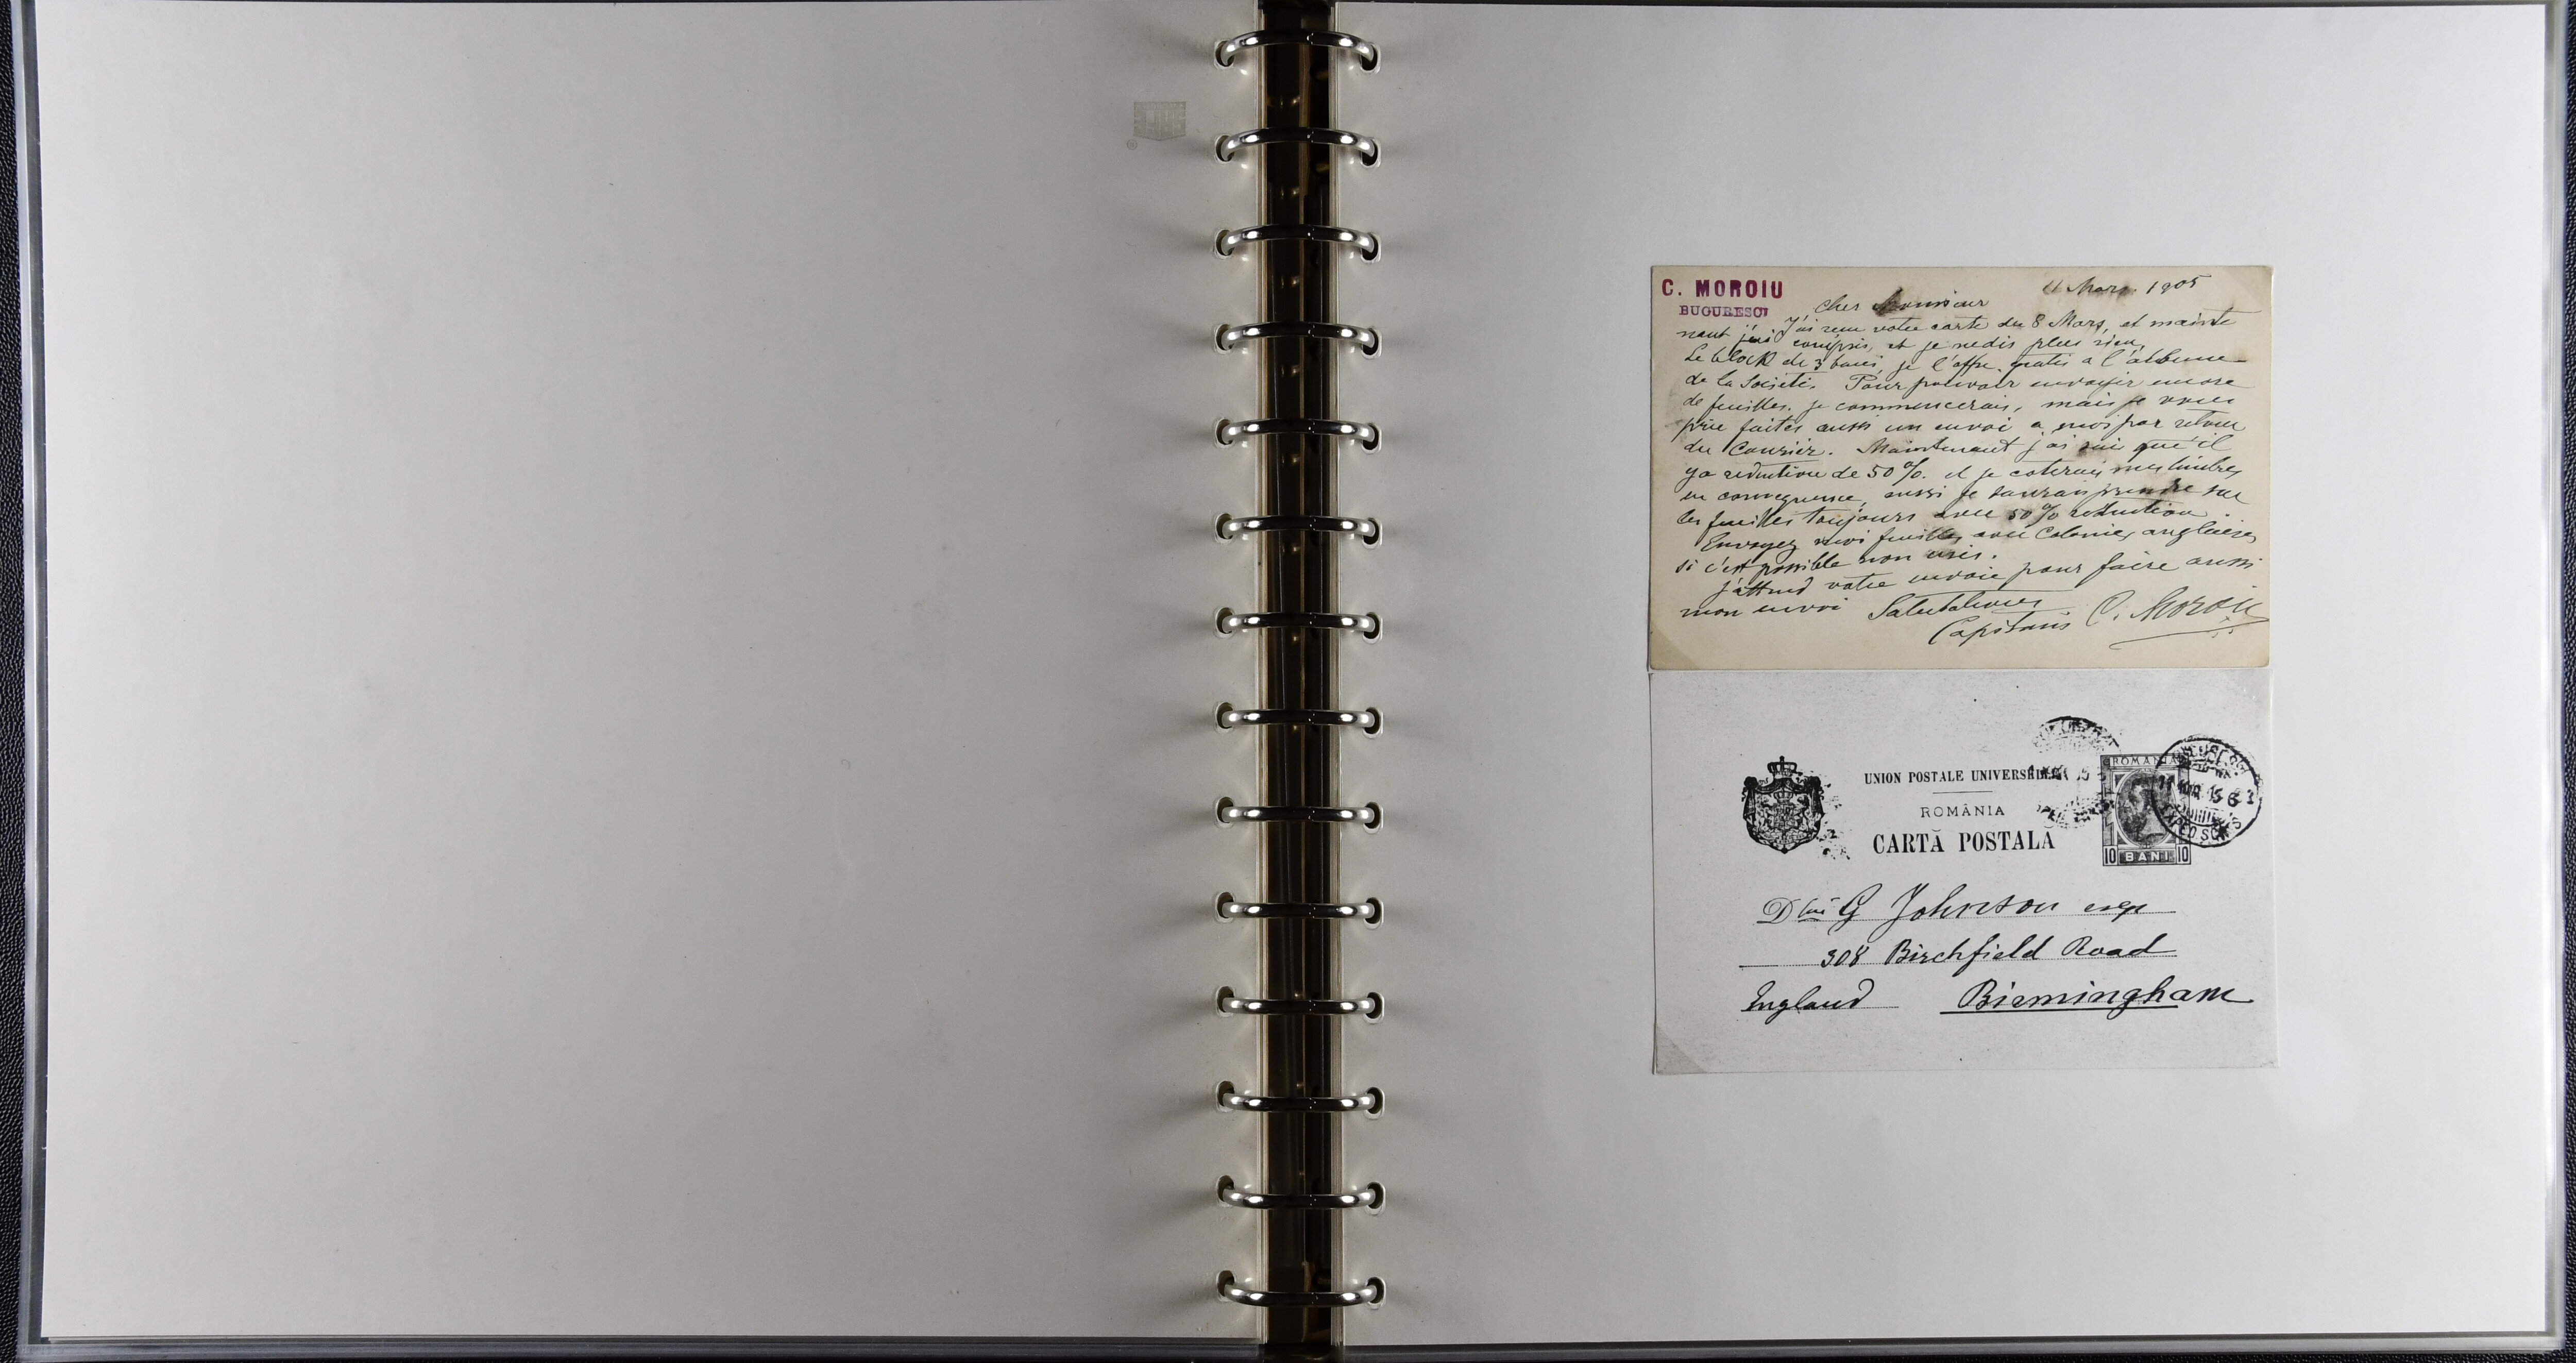 C. MOROIU
BUCURESCI
11 Mars. 1905
Cher Monsieur
J'ai recu votre carte du 8 Mars, et mainte
nant j'ai compris, et je ne dis plus rien.
Le block de 3 bani, je l'offre gratis a l'albume
de la Societé. Pour pouvoir envoyer encore
de feuilles, je commencerais, mais je vous
prie faites aussi un envoi a moi par retour
du Courier. Maintenant j'ai que'il
ya reduction de 50%. et je coterais mes timbres
en consequence, aussi je saurais prendre sur
les feuilles toujours avec 50% reduction
Envoyez moi feuilles avec Colonies anglaises,
si c'est possible non usés.
J'attend votre envoie pour faire aussi
mon envoi Salutations
C. Moroiu
UNION POSTALE UNIVERSELLE
ROMÂNIA
CARTĂ POSTALĂ
ROMANIA
10 BANI 10
EXPED SCRIS
Dlui G Johnson esqr
308 Birchfield Road
England Birmingham